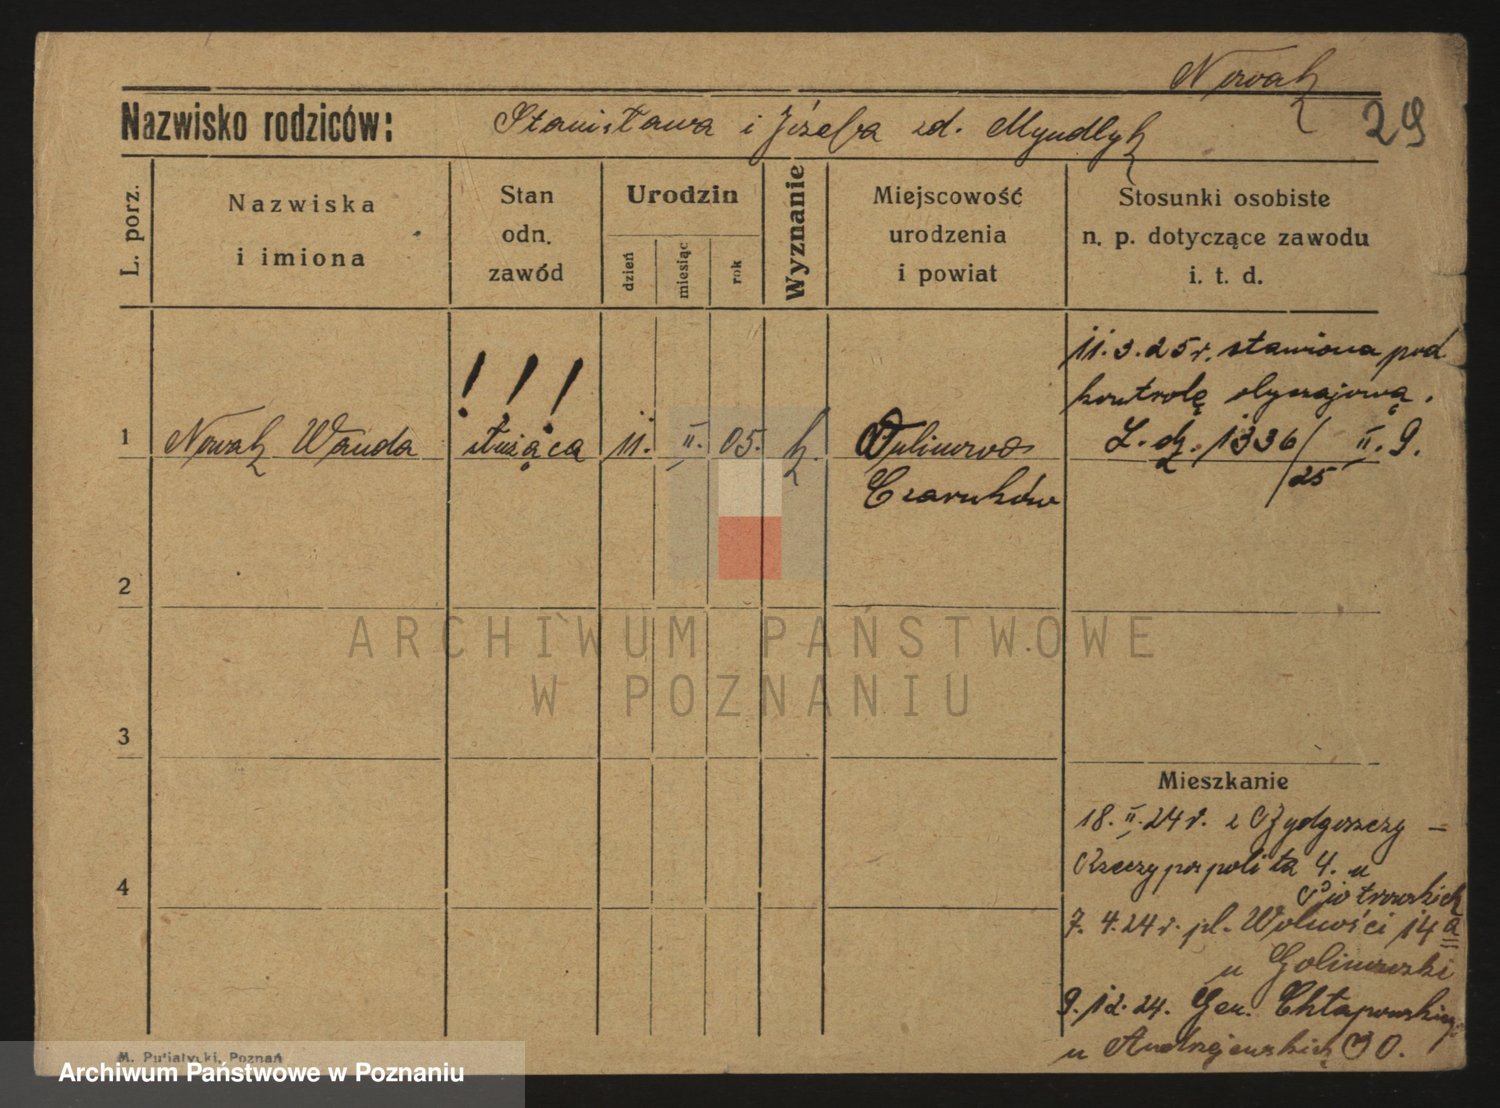 Nowak
Nazwisko rodziców: Stanisława i Józefa zd. Myndlyk 29
L. porz.
Nazwiska
i imiona
Stan
odn.
zawód
Urodzin
dzień
miesiąc
rok
Wyznanie
Miejscowość
urodzenia
i powiat
Stosunki osobiste
n. p. dotyczące zawodu
i. t. d.
11.3.25 r. stawiona pod
kontrolę obyczajową.
! ! !
1 Nowak Wanda służąca 11. II. 05. k. L. dz. 1336/25 II. 9.
Czarnków
2
ARCHIWUM PAŃSTWOWE
W POZNANIU
3
Mieszkanie
18.II.24 r. z Bydgoszczy –
Rzeczypospolita 4. u
Piotrowskich
4
7. 4.24 r. pl. Wolności 14 a
u Golinowski
9.12.24. Gen. Chłapowskiego
u Andrzejewskich 30.
M. Putiatycki, Poznań
Archiwum Państwowe w Poznaniu